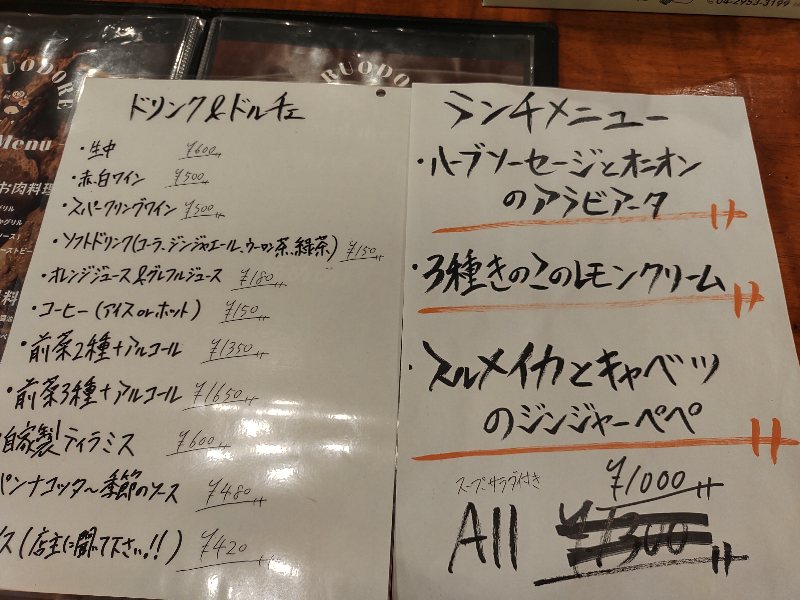 04-2953-3199
BUODORE
BUODORE
Menu
お肉料理
ドリンク&ドルチェ
・生中 ¥600
・赤、白ワイン ¥500
・スパークリングワイン ¥500
・ソフトドリンク(コーラ、ジンジャエール、ウーロン茶、緑茶) ¥150
・オレンジジュース&グレフルジュース ¥180
・コーヒー(アイスorホット) ¥150
・前菜2種+アルコール ¥1350
・前菜3種+アルコール ¥1650
自家製ティラミス ¥600
パンナコッタ~季節のソース ¥480
ス(店主に聞いて下さい!!) ¥420
ランチメニュー
・ハーブソーセージとオニオン
のアラビアータ
・3種きのこのレモンクリーム
・スルメイカとキャベツ
のジンジャーペペ
スープ、サラダ付き ¥1000
All ¥1300